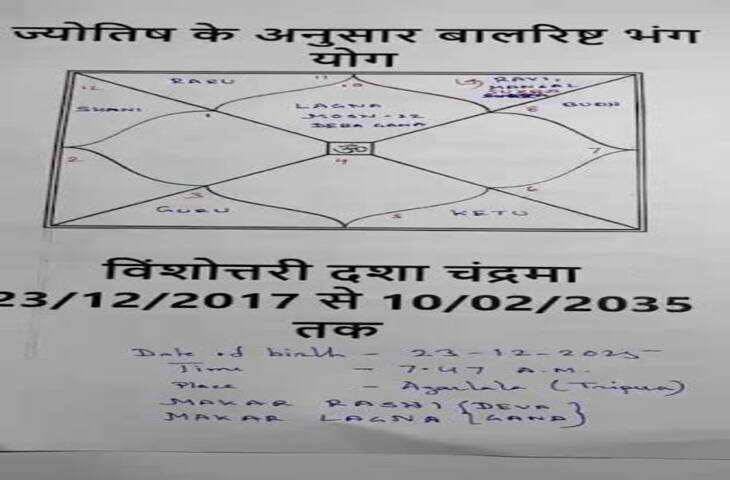 ज्योतिष के अनुसार बालरिष्ट भंग
योग
RAHU
11
10
12
SHANI
LAGNA
MOON-22
DEVA GANA
RAVI
MANGAL
SUKRA
8
BUDH
1
ॐ
2
4
7
3
6
GURU
5
KETU
विंशोत्तरी दशा चंद्रमा
23/12/2017 से 10/02/2035
तक
Date of birth - 23-12-2025
Time - 7.47 A.M.
Place - Agartala (Tripura)
MAKAR RASHI {DEVA
MAKAR LAGNA {GANA}